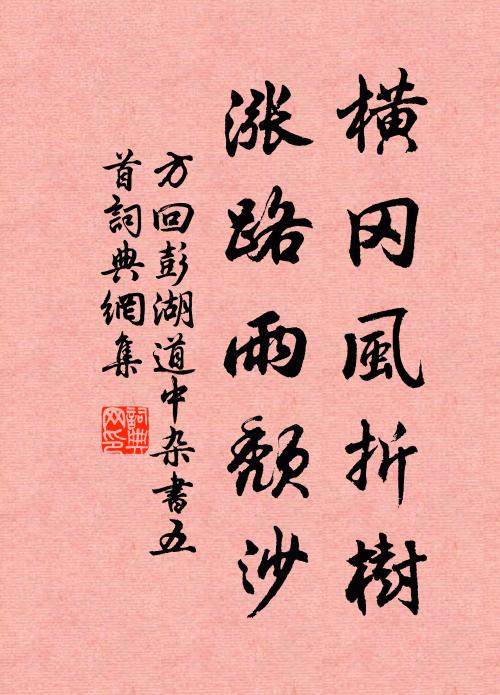 橫冈風折樹
漲路雨頽沙
方回彭湖道中杂書五
首詞典網集
詞典
网印